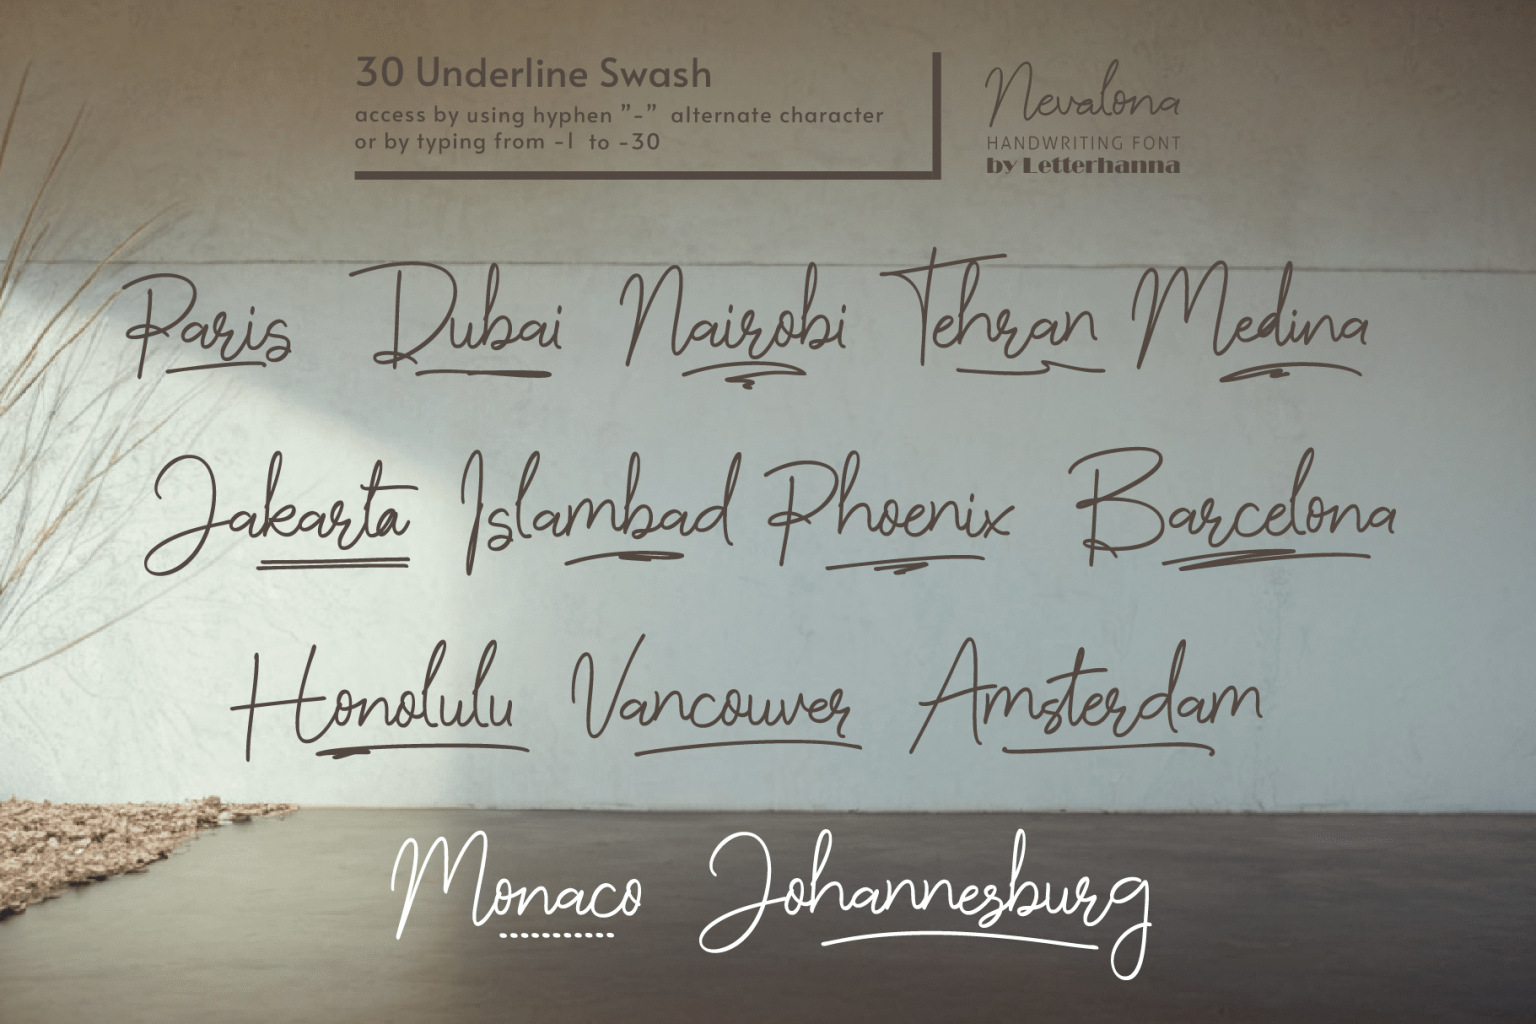 30 Underline Swash
access by using hyphen "-" alternate character
or by typing from -1 to -30
Nevalona
HANDWRITING FONT
by Letterhanna
Paris Dubai Nairobi Tehran Medina
Jakarta Islambad Phoenix Barcelona
Honolulu Vancouver Amsterdam
Monaco Johannesburg